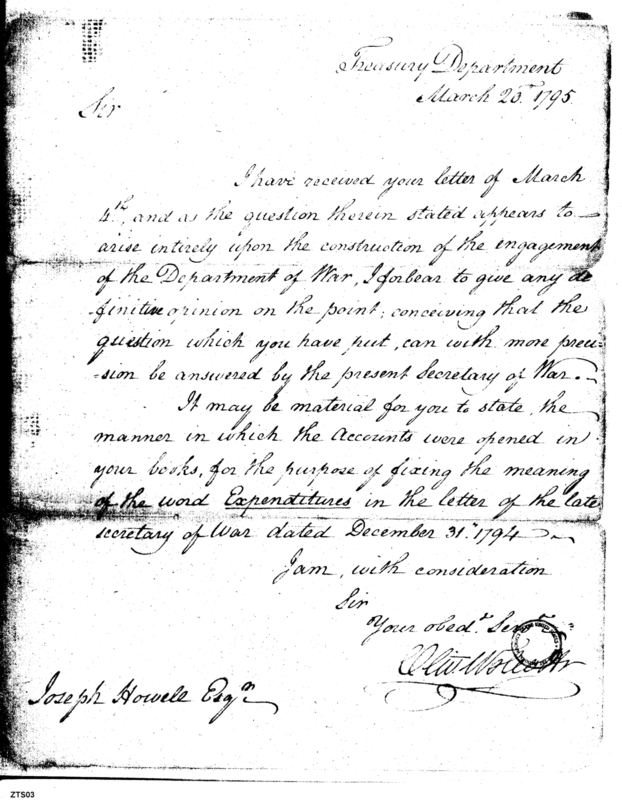 Treasury Department
March 20th 1795
Sir
I have received your letter of March
4th, and as the question therein stated appears to
arise intirely upon the construction of the engagement
of the Department of War, I forbear to give any de
finitive opinion on the point; conceiving that the
question which you have put, can with more preci=
=sion be answered by the present Secretary of War.
It may be material for you to state, the
manner in which the Accounts were opened in
your books, for the purpose of fixing the meaning
of the word Expenditures in the letter of the late
secretary of War dated December 31. 1794
I am, with consideration
Sir
Your obedt. Servt.
Oliv Wolcott Jr
Joseph Howell Esqr.
ZTS03